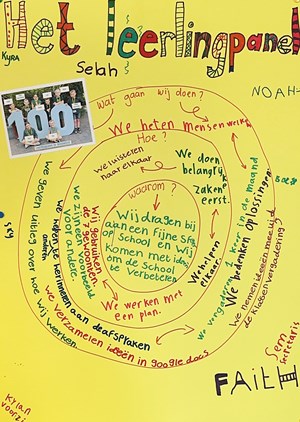 Het leerlingpanel
KYRA
Selah
NOAH
100
wat gaan wij doen?
We heten mensen welkom
Hoe?
we luisteren
naar elkaar
We doen
belangrijke
zaken
eerst.
waarom?
Wij dragen bij
aan een fijne sfeer
op School en wij
Komen met ideeën
om de School
te verbeteren
We helpen
elkaar.
We werken met
een plan.
Wij gebruiken
de 7 gewoonten
we zijn een voorbeeld
voor anderen.
we vergaderen 1 keer in de maand
We bedenken oplossingen
we nemen ideeën mee uit
de klassenvergadering
we houden ons
aan de afspraken
we geven uitleg over hoe
wij werken.
we verzamelen ideeën in google docs
Sem
Secretaris
FAITH
Kylan
voorzi